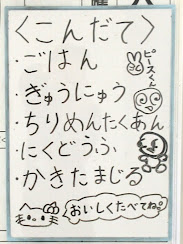 ＜こんだて＞
・ごはん
・ぎゅうにゅう
・ちりめんたくあん
・にくどうふ
・かきたまじる
ピースくん
おいしくたべてね。